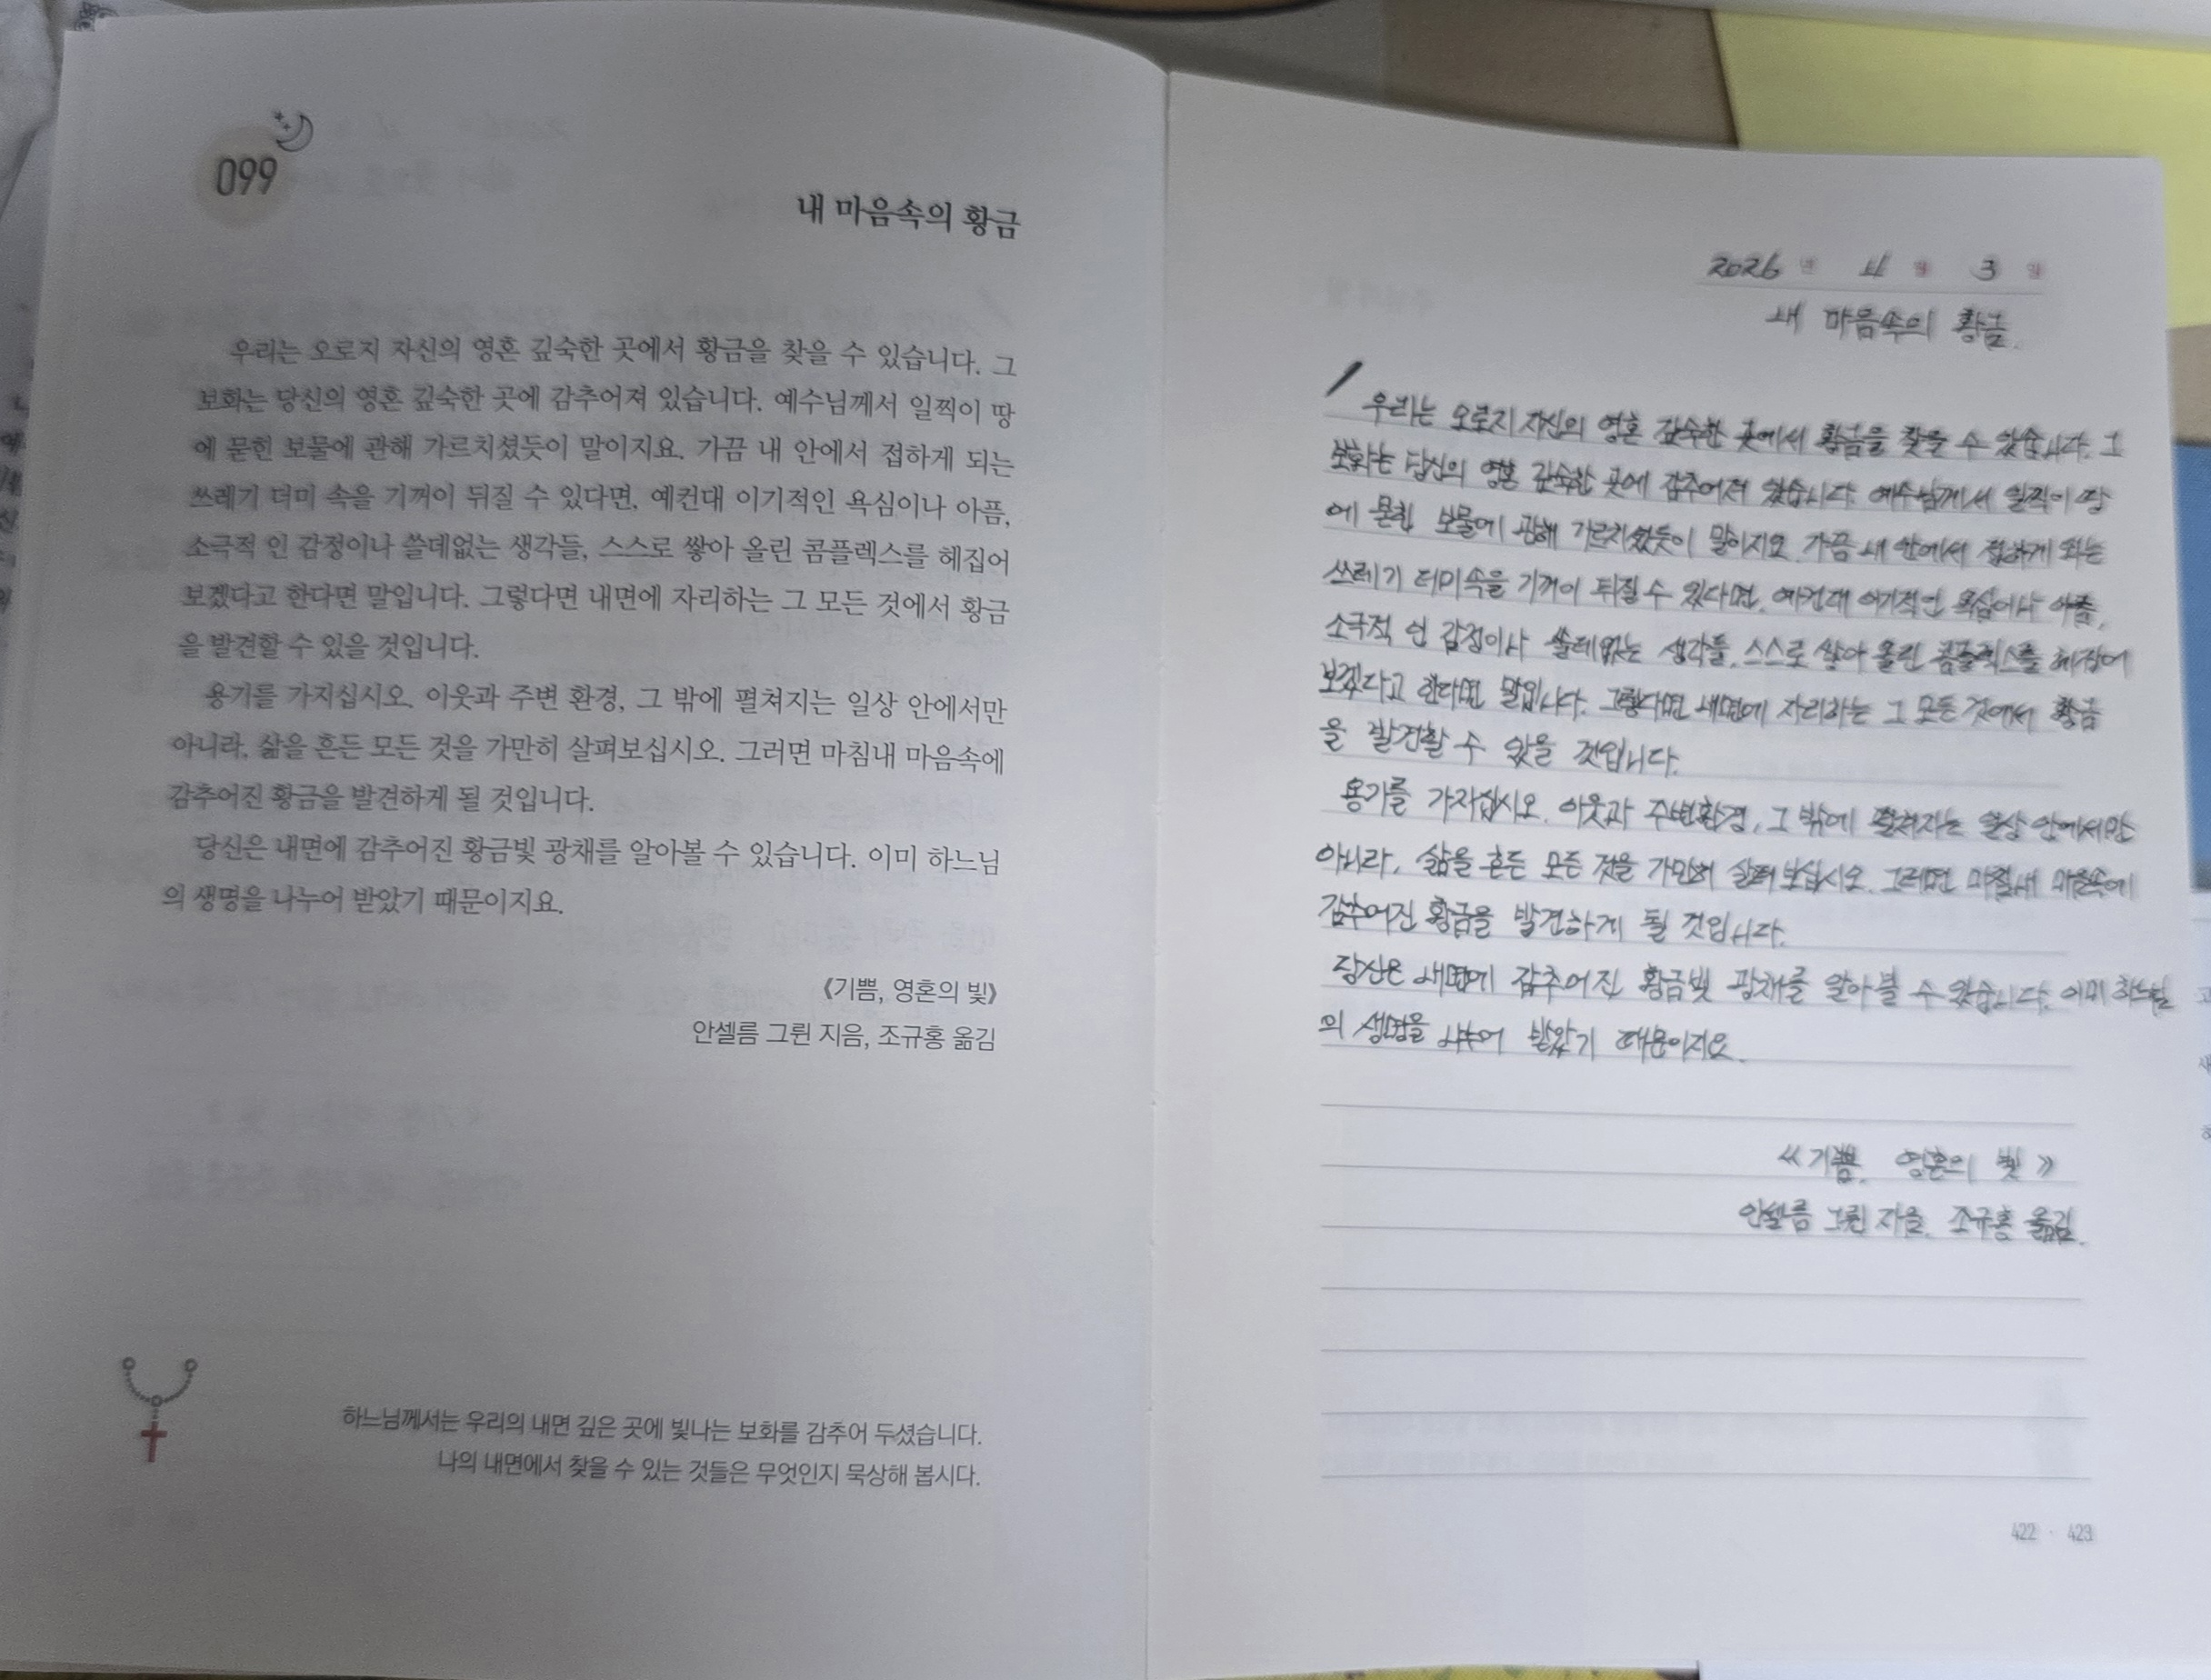 099
내 마음속의 황금
우리는 오로지 자신의 영혼 깊숙한 곳에서 황금을 찾을 수 있습니다. 그
보화는 당신의 영혼 깊숙한 곳에 감추어져 있습니다. 예수님께서 일찍이 땅
에 묻힌 보물에 관해 가르치셨듯이 말이지요. 가끔 내 안에서 접하게 되는
쓰레기 더미 속을 기꺼이 뒤질 수 있다면, 예컨대 이기적인 욕심이나 아픔,
소극적 인 감정이나 쓸데없는 생각들, 스스로 쌓아 올린 콤플렉스를 헤집어
보겠다고 한다면 말입니다. 그렇다면 내면에 자리하는 그 모든 것에서 황금
을 발견할 수 있을 것입니다.
용기를 가지십시오. 이웃과 주변 환경, 그 밖에 펼쳐지는 일상 안에서만
아니라, 삶을 흔든 모든 것을 가만히 살펴보십시오. 그러면 마침내 마음속에
감추어진 황금을 발견하게 될 것입니다.
당신은 내면에 감추어진 황금빛 광채를 알아볼 수 있습니다. 이미 하느님
의 생명을 나누어 받았기 때문이지요.
《기쁨, 영혼의 빛》
안셀름 그륀 지음, 조규홍 옮김
하느님께서는 우리의 내면 깊은 곳에 빛나는 보화를 감추어 두셨습니다.
나의 내면에서 찾을 수 있는 것들은 무엇인지 묵상해 봅시다.
2026 년 11 월 3 일
내 마음속의 황금.
우리는 오로지 자신의 영혼 깊숙한 곳에서 황금을 찾을 수 있습니다. 그
보화는 당신의 영혼 깊숙한 곳에 감추어져 있습니다. 예수님께서 일찍이 땅
에 묻힌 보물에 관해 가르치셨듯이 말이지요. 가끔 내 안에서 접하게 되는
쓰레기 더미 속을 기꺼이 뒤질 수 있다면, 예컨대 이기적인 욕심이나 아픔,
소극적 인 감정이나 쓸데없는 생각들, 스스로 쌓아 올린 콤플렉스를 헤집어
보겠다고 한다면 말입니다. 그렇다면 내면에 자리하는 그 모든 것에서 황금
을 발견할 수 있을 것입니다.
용기를 가지십시오. 이웃과 주변환경, 그 밖에 펼쳐지는 일상 안에서만
아니라, 삶을 흔든 모든 것을 가만히 살펴 보십시오. 그러면 마침내 마음속에
감추어진 황금을 발견하게 될 것입니다.
당신은 내면에 감추어진 황금빛 광채를 알아볼 수 있습니다. 이미 하느님
의 생명을 나누어 받았기 때문이지요.
《기쁨, 영혼의 빛》
안셀름 그륀 지음, 조규홍 옮김.
422 · 423